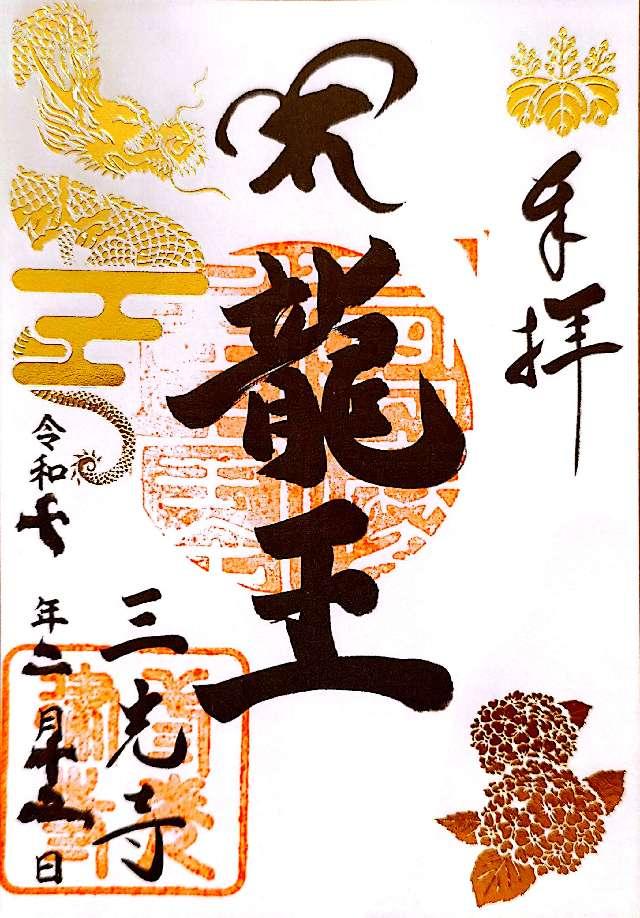 奉拝
龍王
三光寺
令和七年二月十五日